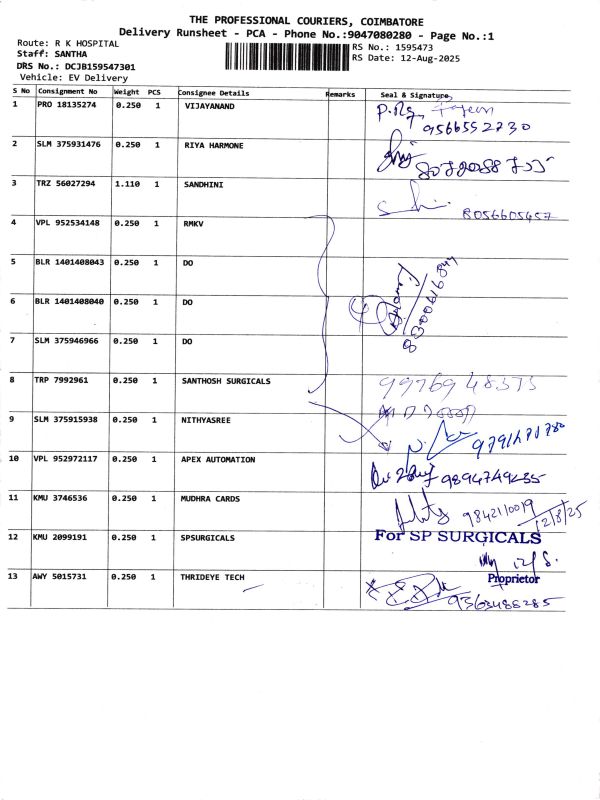 THE PROFESSIONAL COURIERS, COIMBATORE
Delivery Runsheet - PCA - Phone No.:9047080280 - Page No.:1
Route: R K HOSPITAL
Staff: SANTHA
DRS No.: DCJB159547301
Vehicle: EV Delivery
RS No.: 1595473
RS Date: 12-Aug-2025
S No Consignment No Weight PCS Consignee Details Remarks Seal & Signature
1 PRO 18135274 0.250 1 VIJAYANAND
9566552730
2 SLM 375931476 0.250 1 RIYA HARMONE
3 TRZ 56027294 1.110 1 SANDHINI
8056605457
4 VPL 952534148 0.250 1 RMKV
5 BLR 1401408043 0.250 1 DO
6 BLR 1401408040 0.250 1 DO
7 SLM 375946966 0.250 1 DO
8 TRP 7992961 0.250 1 SANTHOSH SURGICALS
9 SLM 375915938 0.250 1 NITHYASREE
10 VPL 952972117 0.250 1 APEX AUTOMATION
11 KMU 3746536 0.250 1 MUDHRA CARDS
9842110019
12/8/25
12 KMU 2099191 0.250 1 SPSURGICALS
For SP SURGICALS
12/8.
Proprietor
13 AWY 5015731 0.250 1 THRIDEYE TECH
9363488285